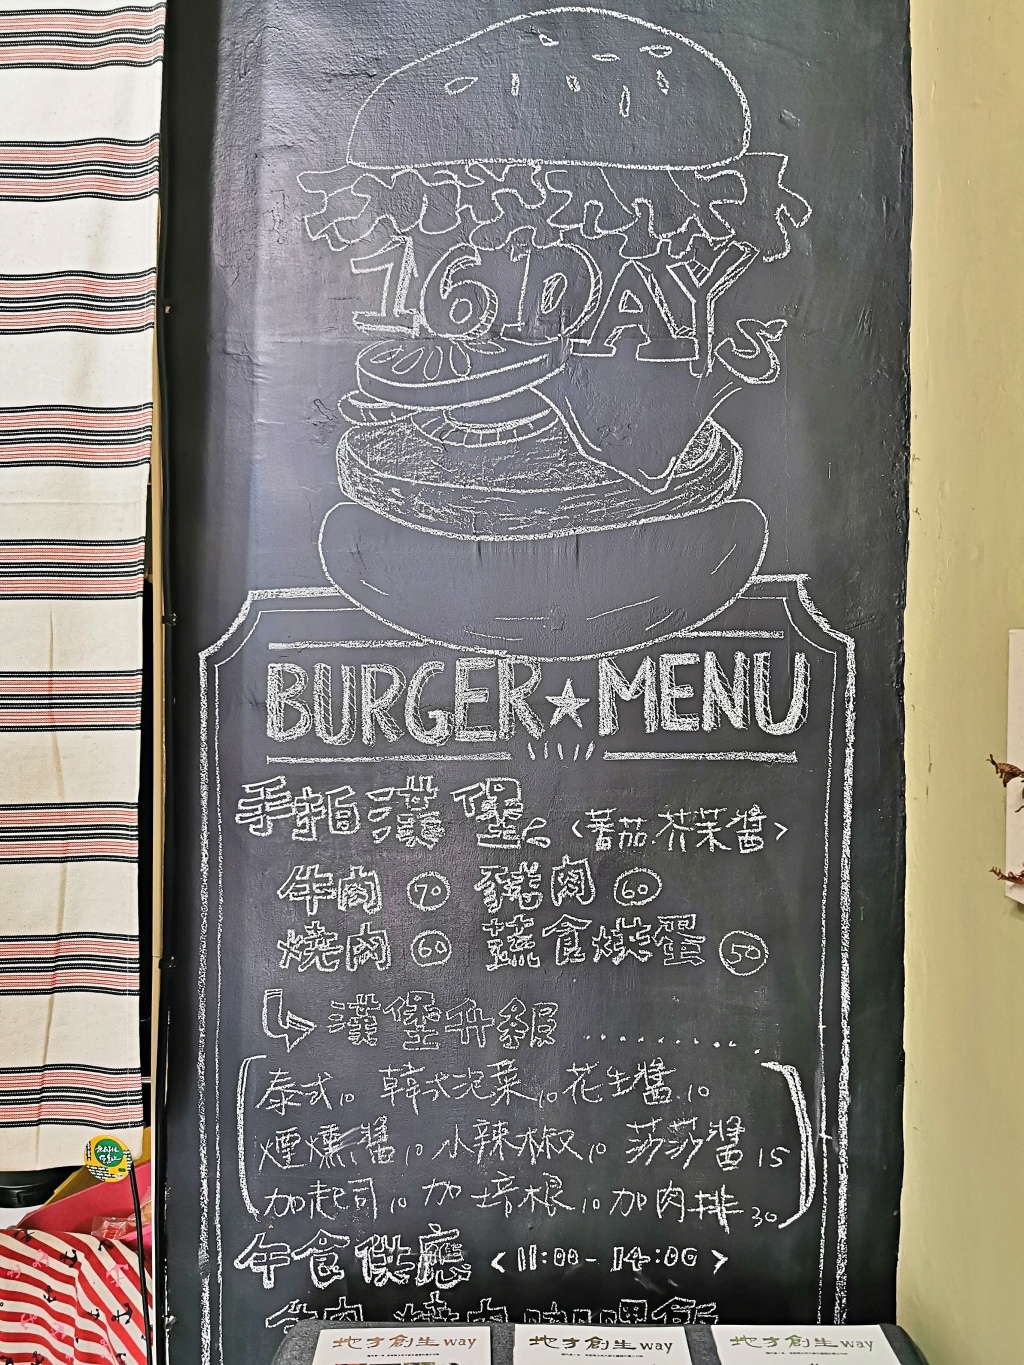 16 DAYS
BURGER★MENU
手拍漢堡 <蕃茄.芥茉醬>
牛肉 70 豬肉 60
燒肉 60 蔬食烘蛋 50
漢堡升級..........
泰式10 韓式泡菜10 花生醬10
煙燻醬10 小辣椒10 莎莎醬15
加起司10 加培根10 加肉排30
午食供應 <11:00-14:00>
牛肉 燒肉咖哩飯
地方創生way 地方創生way 地方創生way